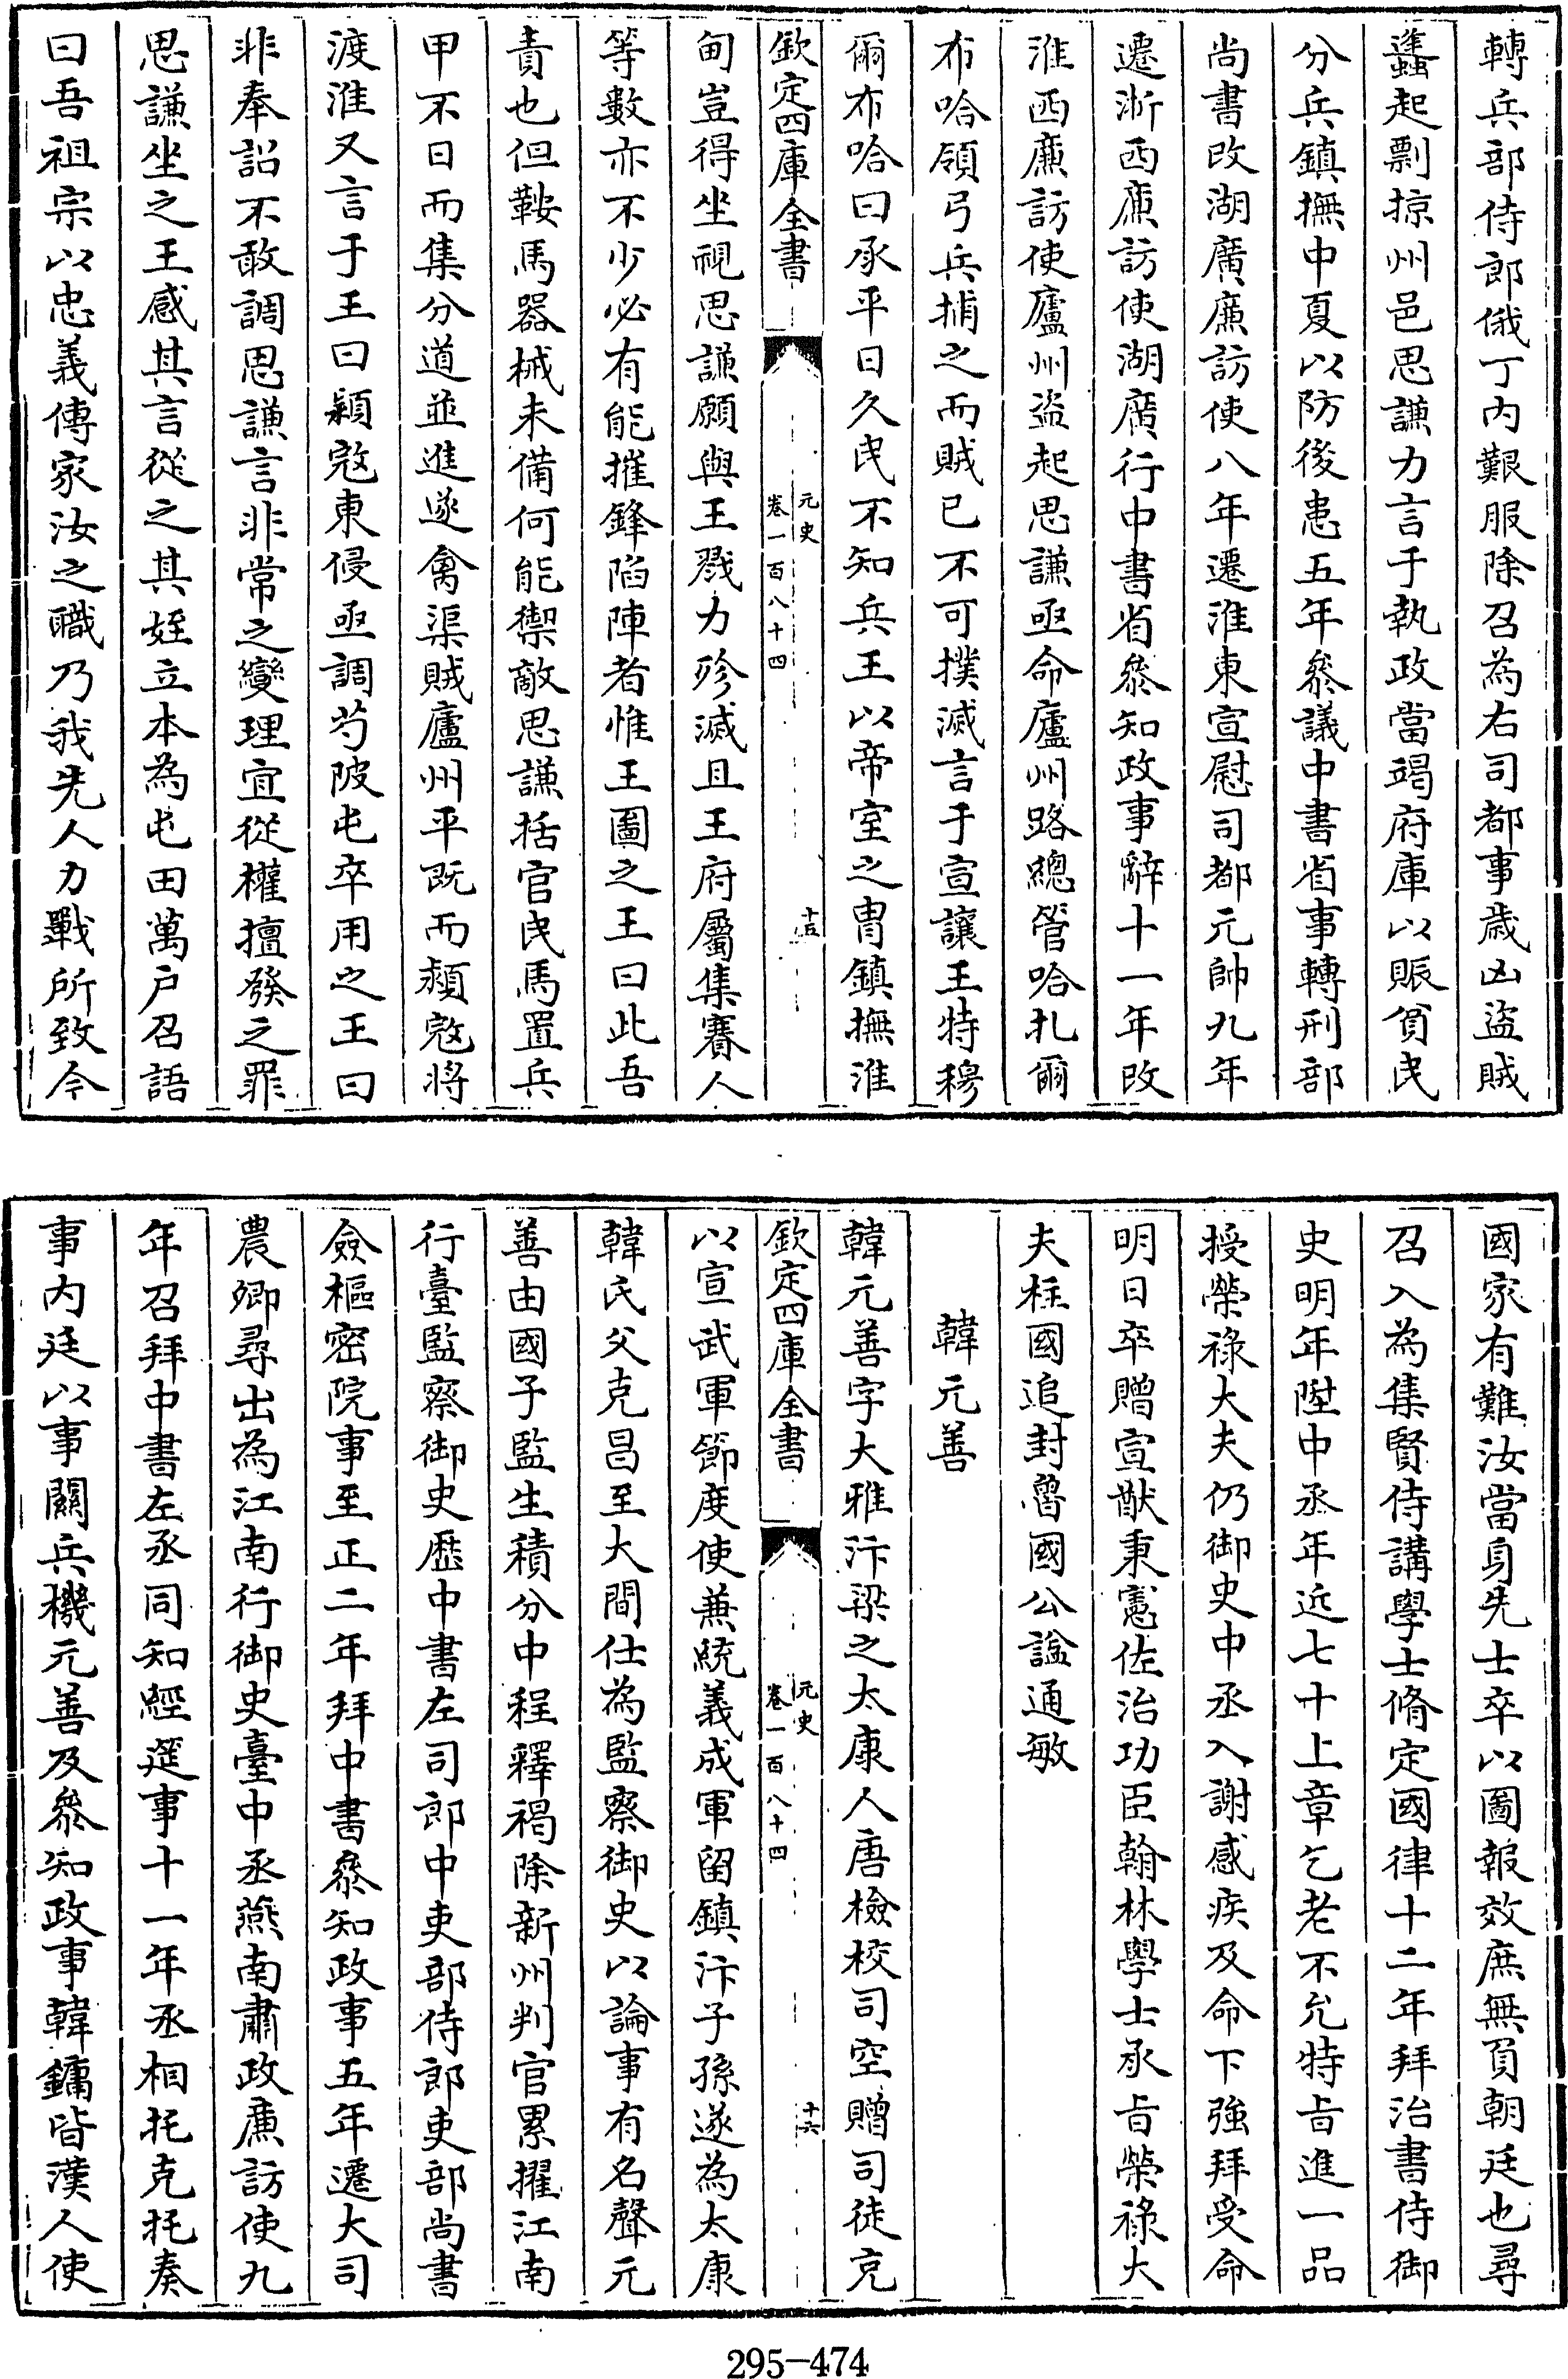 轉兵部侍郎俄丁内艱服除召為右司都事歲凶盜賊
蠭起剽掠州邑思謙力言于執政當竭府庫以賑貧民
分兵鎮撫中夏以防後患五年叅議中書省事轉刑部
尚書改湖廣廉訪使八年遷淮東宣慰司都元帥九年
遷浙西廉訪使湖廣行中書省叅知政事辭十一年改
淮西廉訪使廬州盜起思謙亟命廬州路總管哈扎爾
布哈領弓兵捕之而賊已不可撲滅言于宣讓王特穆
爾布哈曰承平日久民不知兵王以帝室之胄鎮撫淮
欽定四庫全書
元史
卷一百八十四
十五
甸豈得坐視思謙願與王戮力殄滅且王府屬集賽人
等數亦不少必有能摧鋒陷陣者惟王圖之王曰此吾
責也但鞍馬器械未備何能禦敵思謙括官民馬置兵
甲不日而集分道並進遂禽渠賊廬州平既而潁寇將
渡淮又言于王曰潁寇東侵亟調芍陂屯卒用之王曰
非奉詔不敢調思謙言非常之變理宜從權擅發之罪
思謙坐之王感其言從之其姪立本為屯田萬户召語
曰吾祖宗以忠義傳家汝之職乃我先人力戰所致今
國家有難汝當身先士卒以圖報效庶無負朝廷也尋
召入為集賢侍講學士脩定國律十二年拜治書侍御
史明年陞中丞年近七十上章乞老不允特㫖進一品
授榮祿大夫仍御史中丞入謝感疾及命下強拜受命
明日卒贈宣猷秉憲佐治功臣翰林學士承㫖榮祿大
夫柱國追封魯國公諡通敏
韓元善
韓元善字大雅汴梁之太康人唐檢校司空贈司徒充
欽定四庫全書
元史
卷一百八十四
十六
以宣武軍節度使兼統義成軍留鎮汴子孫遂為太康
韓氏父克昌至大間仕為監察御史以論事有名聲元
善由國子監生積分中程釋褐除新州判官累擢江南
行臺監察御史歷中書左司郎中吏部侍郎吏部尚書
僉樞密院事至正二年拜中書叅知政事五年遷大司
農卿尋出為江南行御史臺中丞燕南肅政廉訪使九
年召拜中書左丞同知經筵事十一年丞相托克托奏
事内廷以事關兵機元善及叅知政事韓鏞皆漢人使
295-474